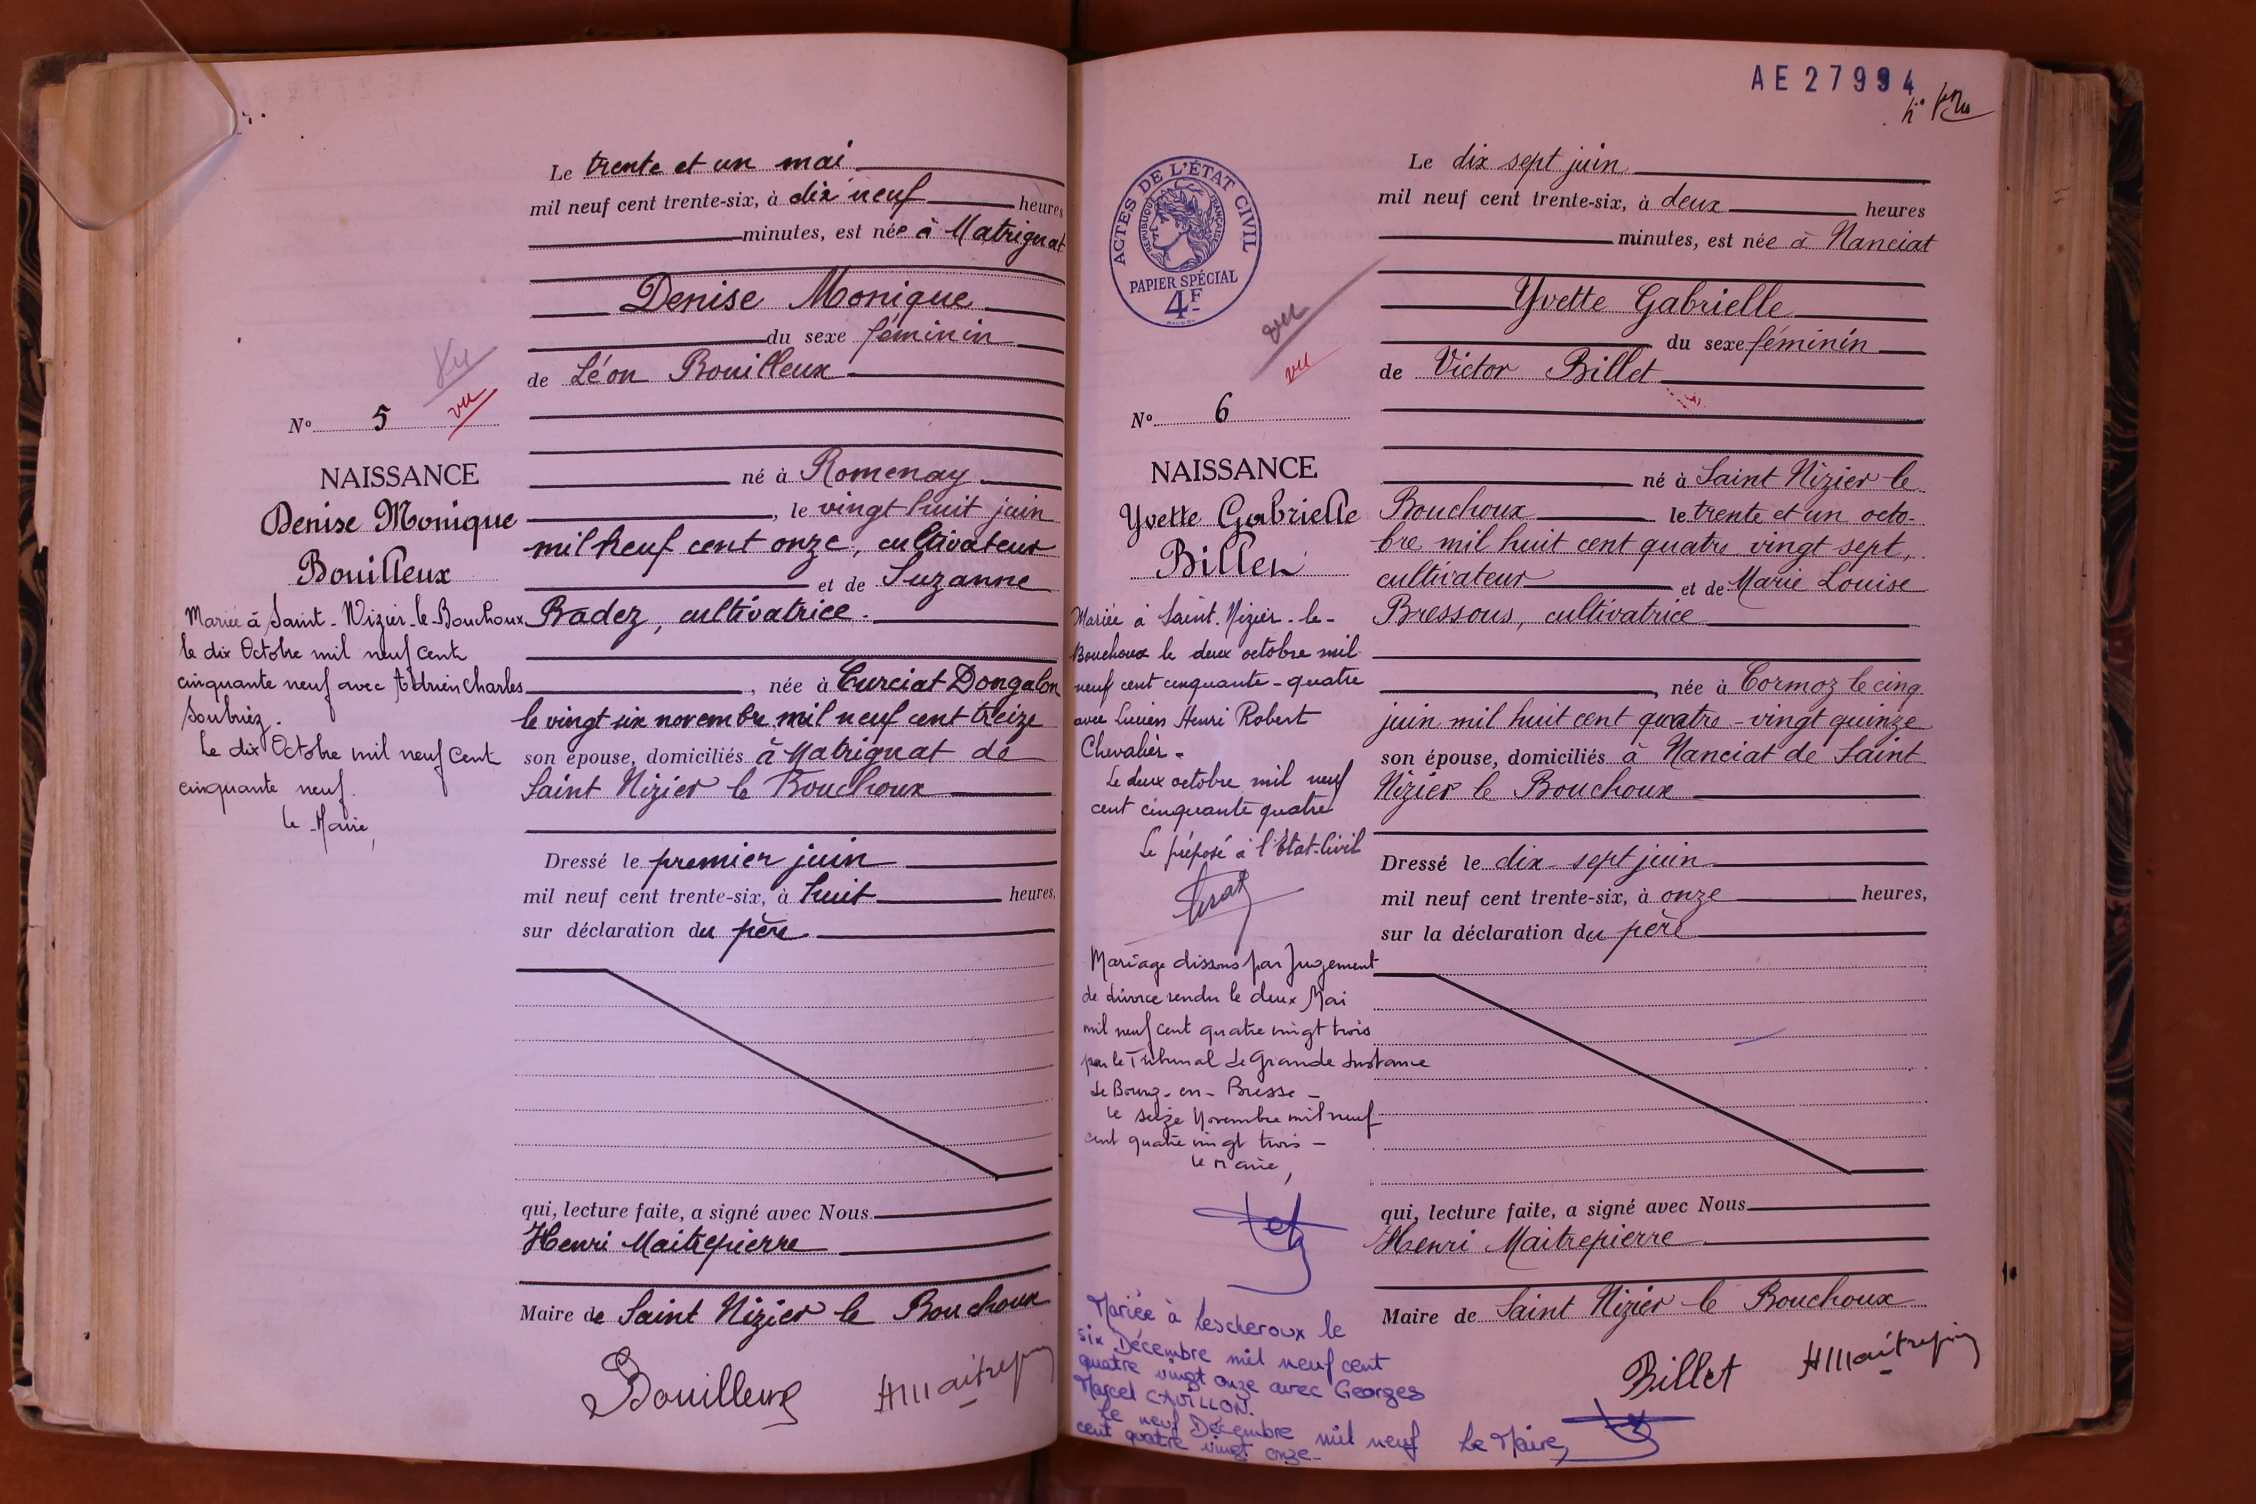 Le trente et un mai
mil neuf cent trente-six, à dix neuf heures
minutes, est née à Matrignat
Denise Monique
du sexe féminin
de Léon Bouilleux
né à Romenay
, le vingt huit juin
mil neuf cent onze, cultivateur
et de Suzanne
Badez, cultivatrice.
, née à Curciat Dongalon
le vingt six novembre mil neuf cent treize
son épouse, domiciliés à Matrignat de
Saint Nizier le Bouchoux
Dressé le premier juin
mil neuf cent trente-six, à huit heures,
sur déclaration du père
qui, lecture faite, a signé avec Nous
Henri Maitrepierre
Maire de Saint Nizier le Bouchoux
Bouilleux HMaitrepierre
vu
vu
N° 5
NAISSANCE
Denise Monique
Bouilleux
Mariée à Saint-Nizier-le-Bouchoux
le dix Octobre mil neuf cent
cinquante neuf avec Adrien Charles
Soubriez.
Le dix Octobre mil neuf cent
cinquante neuf.
Le Maire,
AE27994
ACTES DE L'ÉTAT CIVIL
RÉPUBLIQUE FRANÇAISE
PAPIER SPÉCIAL
4F
vu
vu
N° 6
NAISSANCE
Yvette Gabrielle
Billet
Mariée à Saint-Nizier-le-
Bouchoux le deux octobre mil
neuf cent cinquante-quatre
avec Lucien Henri Robert
Chevalier.
Le deux octobre mil neuf
cent cinquante quatre
Le préposé à l'Etat-Civil
Mariage dissous par Jugement
de divorce rendu le deux Mai
mil neuf cent quatre vingt trois
par le Tribunal de Grande Instance
de Bourg-en-Bresse -
Le seize Novembre mil neuf
cent quatre vingt trois -
Le Maire,
Mariée à Lescheroux le
six Décembre mil neuf cent
quatre vingt onze avec Georges
Marcel CAVILLON.
Le neuf Décembre mil neuf
cent quatre vingt onze-
Le Maire,
Le dix sept juin
mil neuf cent trente-six, à deux heures
minutes, est née à Nanciat
Yvette Gabrielle
du sexe féminin
de Victor Billet
né à Saint Nizier le
Bouchoux le trente et un octo-
bre mil huit cent quatre vingt sept,
cultivateur et de Marie Louise
Bressous, cultivatrice
, née à Cormoz le cinq
juin mil huit cent quatre-vingt quinze
son épouse, domiciliés à Nanciat de Saint
Nizier le Bouchoux
Dressé le dix sept juin
mil neuf cent trente-six, à onze heures,
sur la déclaration du père
qui, lecture faite, a signé avec Nous
Henri Maitrepierre
Maire de Saint Nizier le Bouchoux
Billet HMaitrepierre